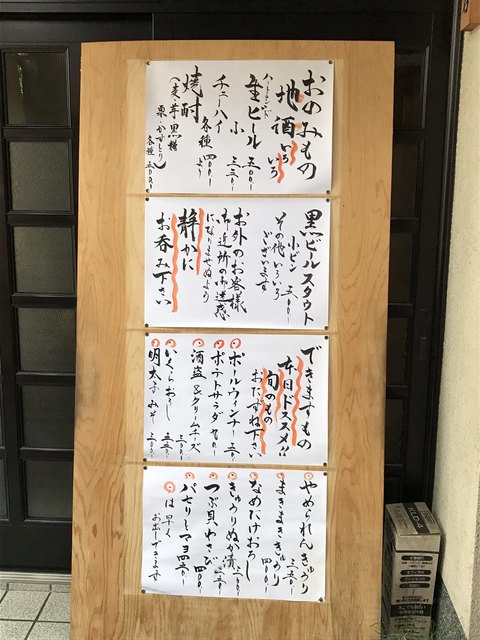 おのみもの
地酒いろいろ
ハートランド
生ビール 五〇〇-
小 三五〇-
チューハイ
各種 四〇〇-より
焼酎
(麦・芋・黒糖
栗・かすとり)
各種 五〇〇-
黒ビールスタウト
小ビン 五〇〇-
その他いろいろ
ございます
お外のお客様
御近所の御迷惑
になりませぬよう
静かに
お呑み下さい
できますもの
本日ドススメ!!
旬のもの
おたずね下さい
ポールウィンナー
ポテトサラダ
酒盗&クリームチーズ
いくらおろし
明太子
やめられんきゅうり
三五〇-
まきまききゅうり
四〇〇-
なめたけおろし
きゅうりぬか漬
つぶ貝わさび
四〇〇-
パセリマヨ
は早く
お出しできます
KLD-4